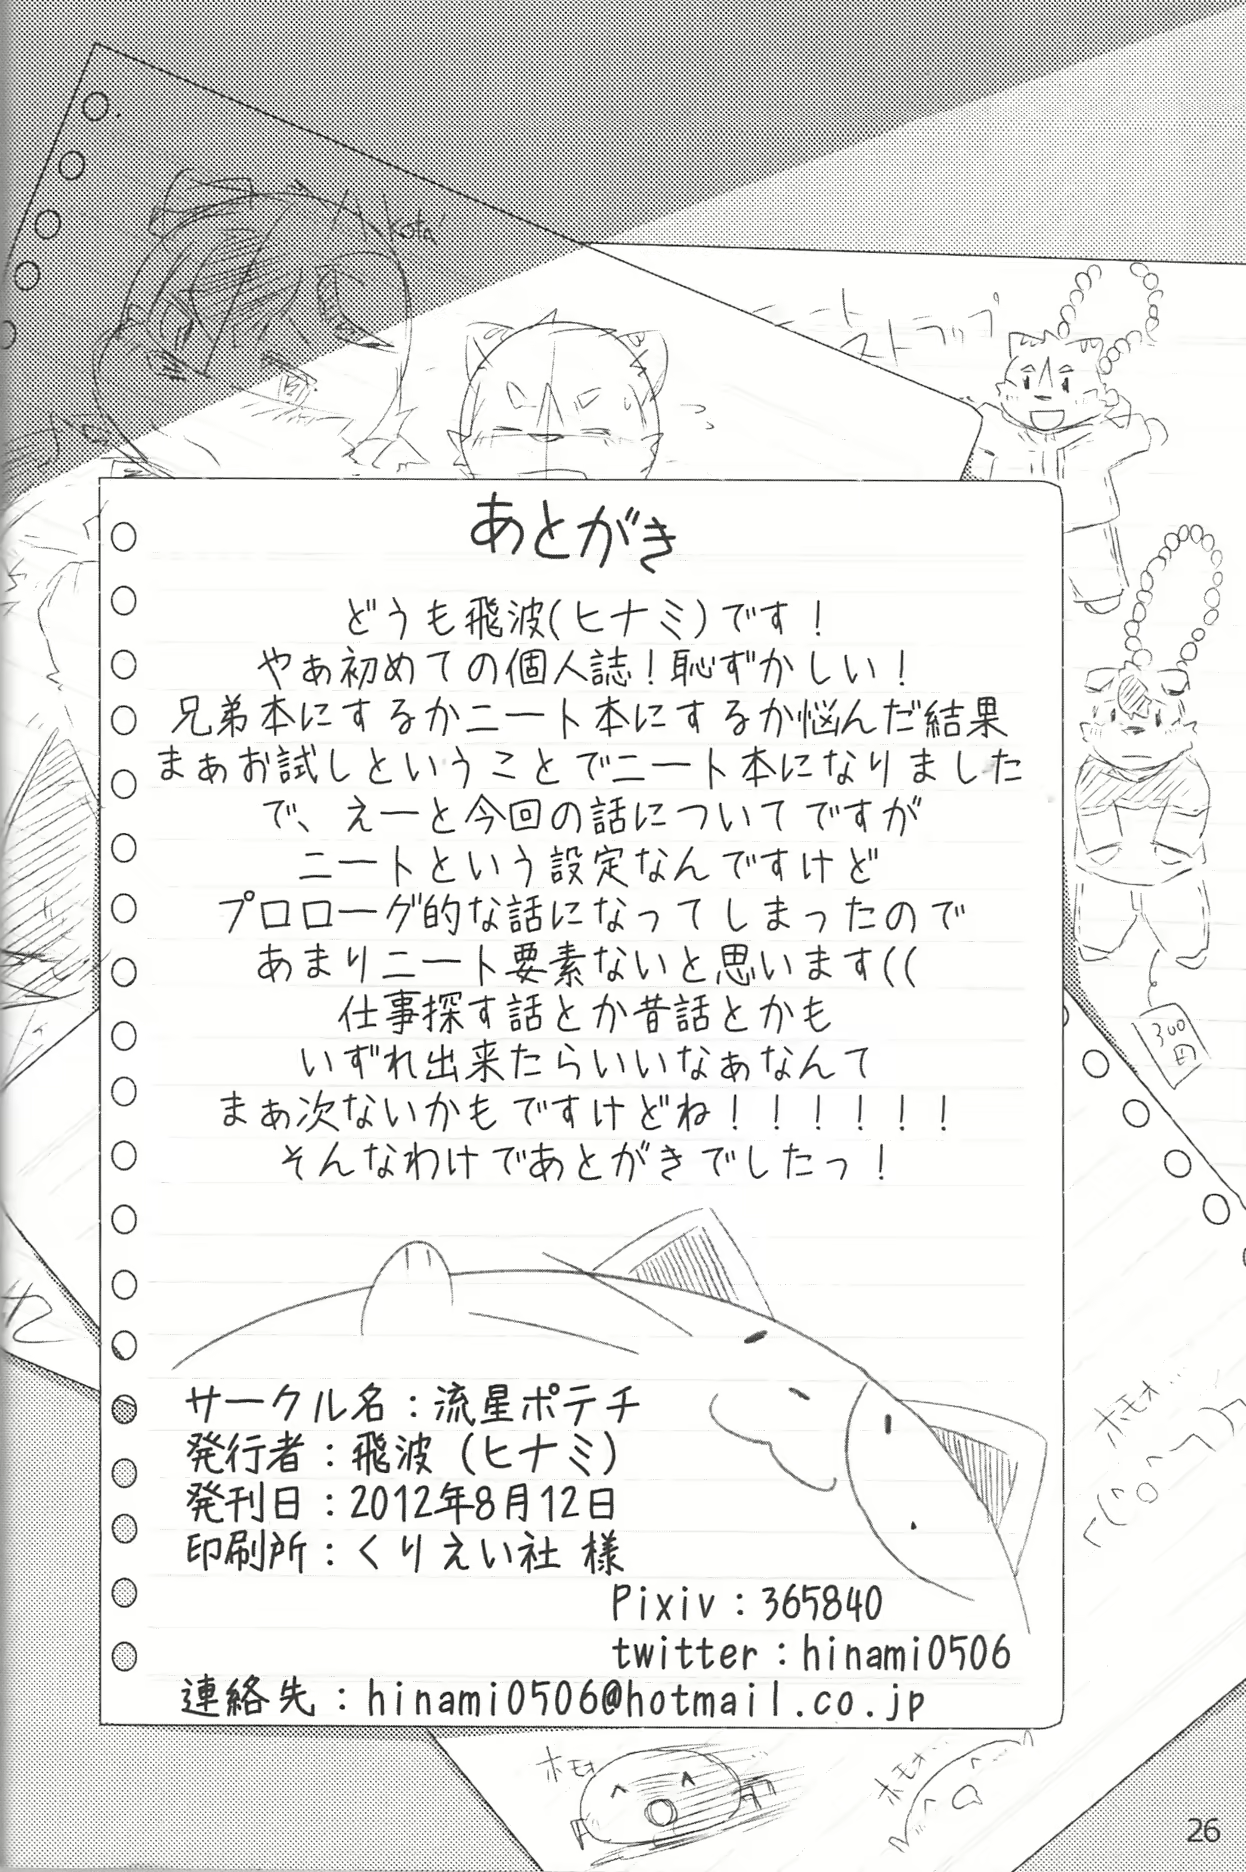 kota
ストラップ
あとがき
どうも飛波(ヒナミ)です!
やぁ初めての個人誌!恥ずかしい!
兄弟本にするかニート本にするか悩んだ結果
まぁお試しということでニート本になりました
で、えーと今回の話についてですが
ニートという設定なんですけど
プロローグ的な話になってしまったので
あまりニート要素ないと思います((
仕事探す話とか昔話とかも
いずれ出来たらいいなぁなんて
まぁ次ないかもですけどね!!!!!!
そんなわけであとがきでしたっ!
300円
サークル名:流星ポテチ
発行者:飛波(ヒナミ)
発刊日:2012年8月12日
印刷所:くりえい社 様
Pixiv:365840
twitter:hinami0506
連絡先:hinami0506@hotmail.co.jp
ホモォ…
ホモォ
ホモォ…
26